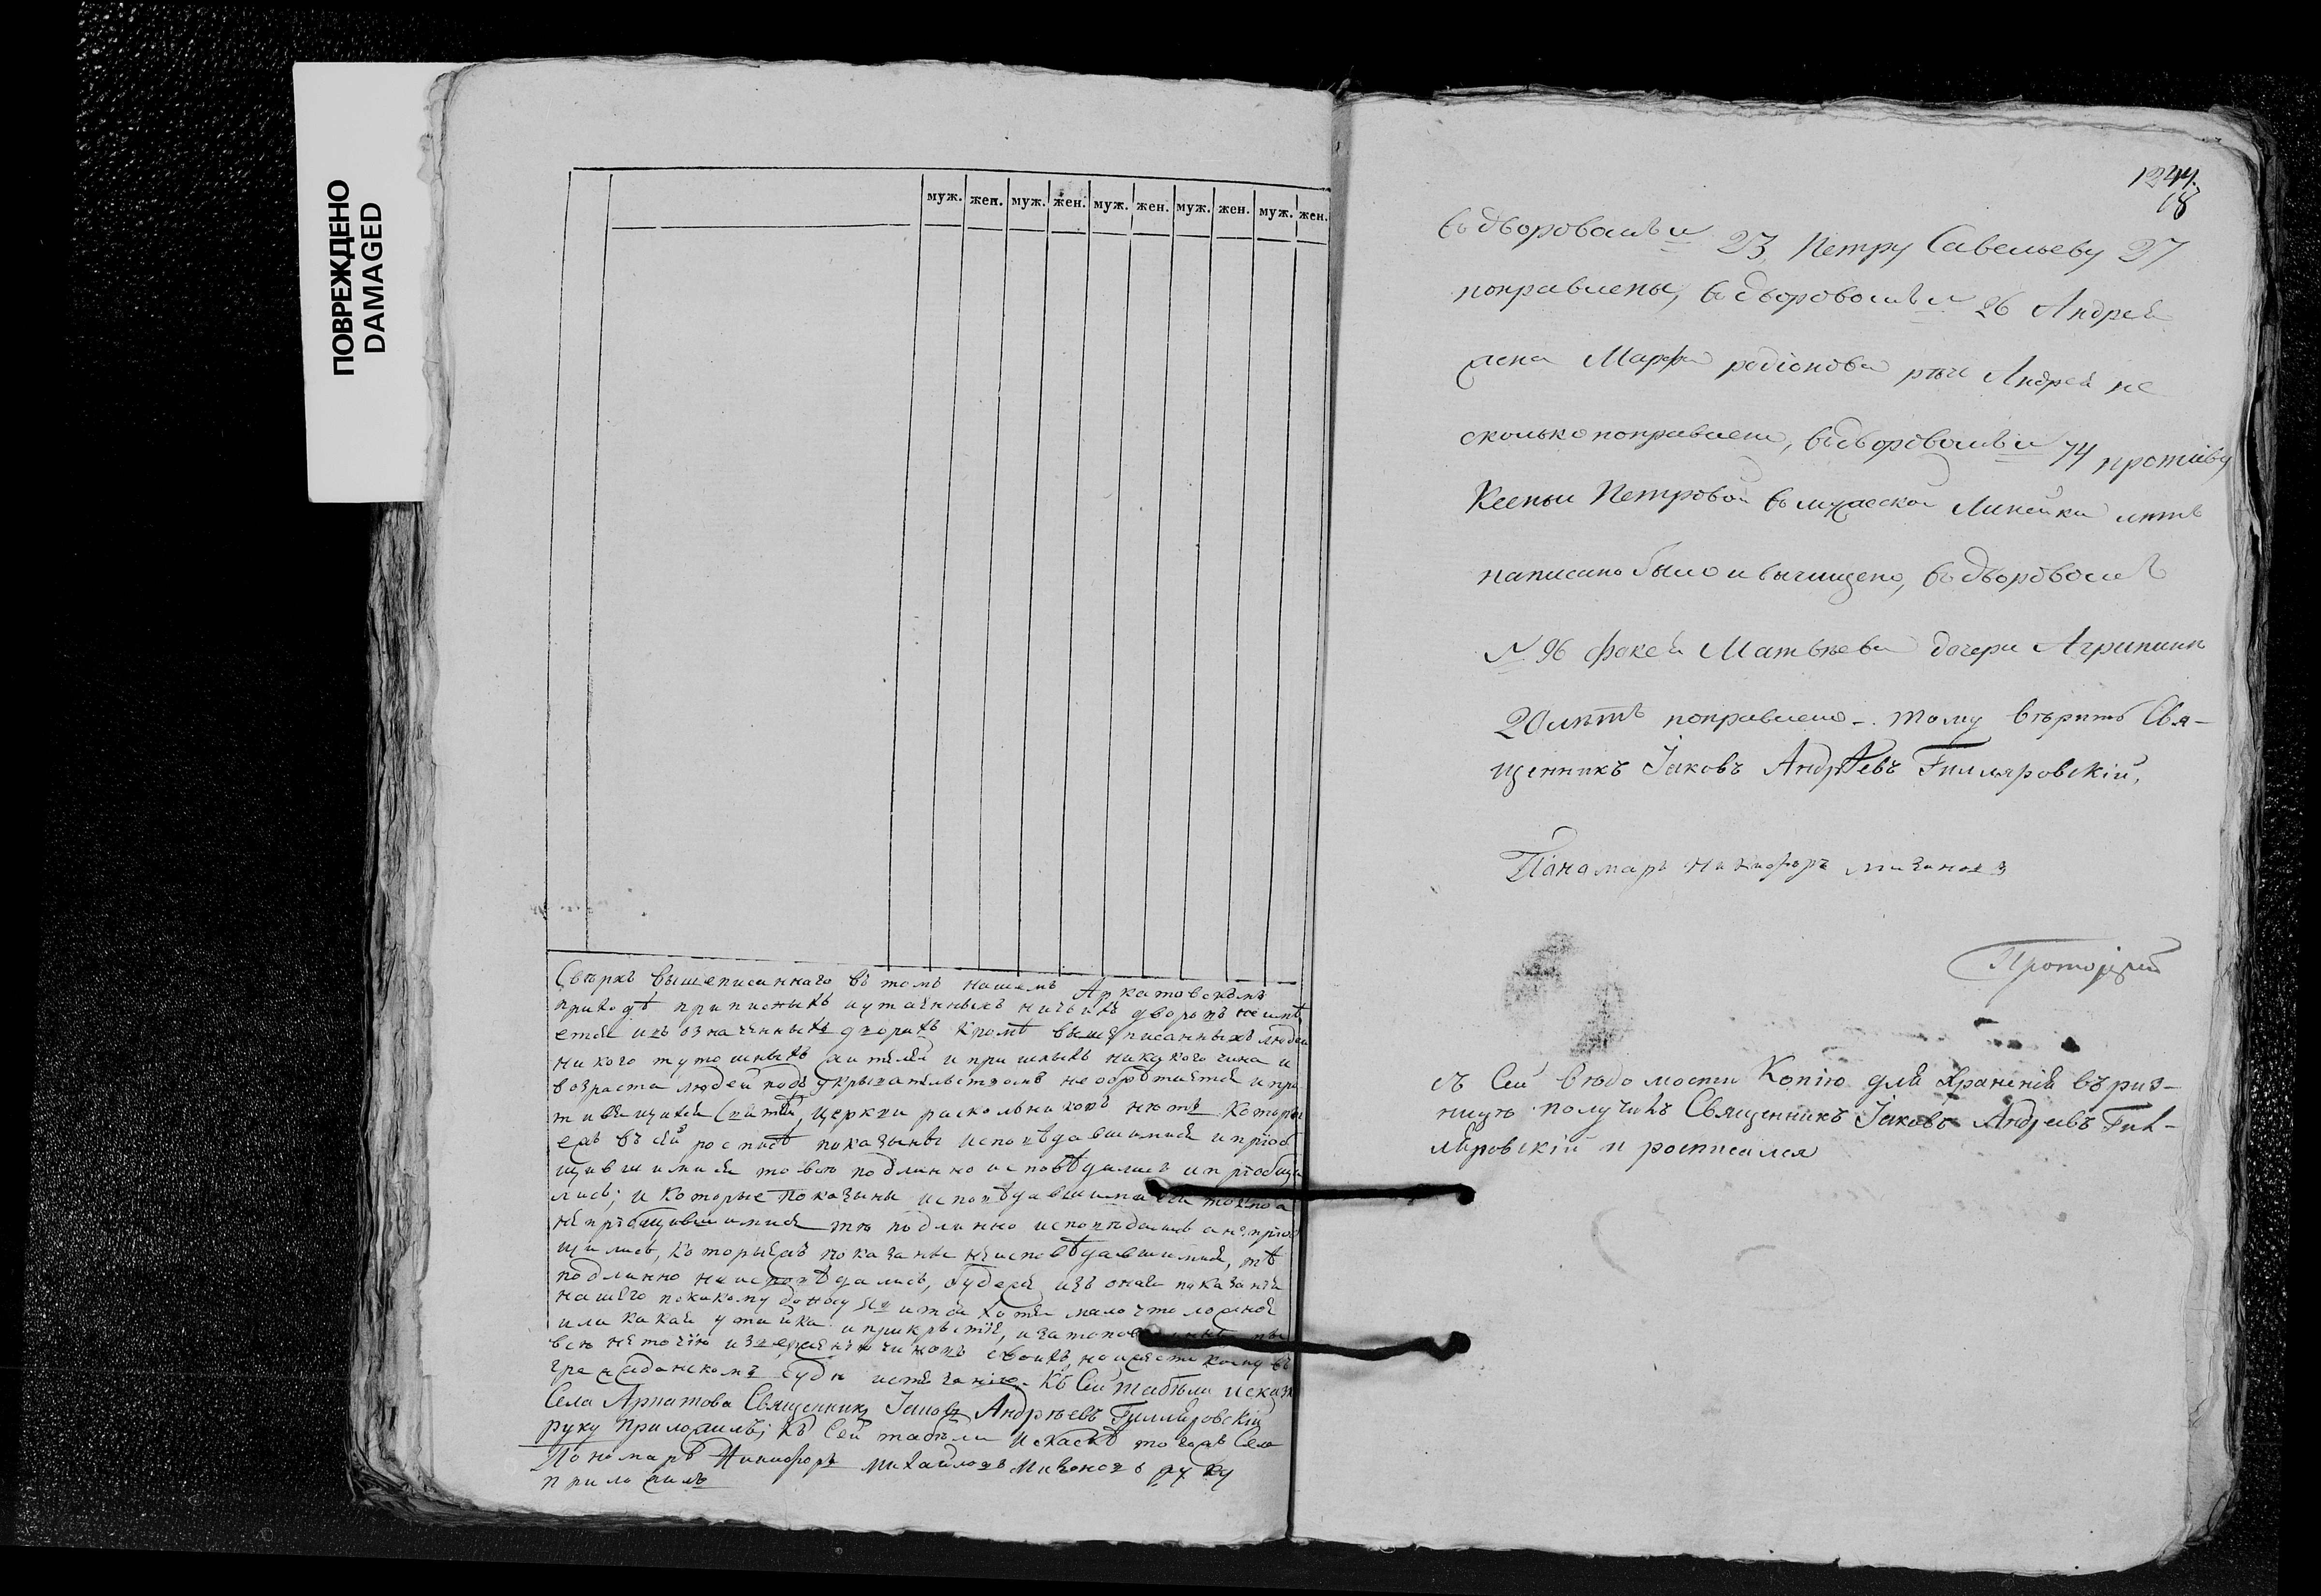 ПОВРЕЖДЕНО
DAMAGED
муж. жен. муж. жен. муж. жен. муж. жен. муж. жен.
Сверхъ вышеписаннаго въ томъ нашемъ Аркатовскомъ
приходѣ приписныхъ и утаенныхъ ничьихъ дворовъ не имѣ
ется и въ означенныхъ дворахъ кромѣ вышеписанныхъ людей
никого тутошныхъ жителей и пришлыхъ никакого чина и
возраста людей подъ укрывательствомъ не обрѣтается и про
тивящихся святей церкви раскольниковъ нетъ Которы
ежъ въ сей росписѣ показаны исповѣдавшимися и пріоб
щившимися то всѣ подлинно исповѣдались и пріобща
лись; и которые показаны исповѣдавшимися токмо а
не пріобщившимися тѣ подлинно исповѣдались а не пріоб
щились, которыежъ показаны не исповѣдавшимися, тѣ
подлинно не исповѣдались, а буде изъ онаго показанія
нашего по какому доносу хотя мало что ложное
или какая утайка и прикрытіе, и за то
всѣ чиновъ своихъ, но и
гражданскомъ судѣ истязанію. Къ Сей табели и сказкѣ
Села Арпатова Священникъ Іаковъ Андрѣевъ Гилляровскій
руку приложилъ; Къ Сей табели и скаскѣ тогожъ Села
Пономарь Никифоръ Михайловъ руку
приложилъ
1244.
18
въ дворовомъ № 23, Петру Савельеву 27
поправлены, въ дворовомъ № 26 Андрей
жена Марфа родіонова Андрей не
сколько поправлено, въ дворовомъ № 74 противу
Ксеньи Петровой въ мужеской линейки лѣтъ
написано было и вычищено, въ дворовомъ
№ 96 Фокея Матвѣева дочери Агрипинѣ
20 лѣтъ поправлено -. тому вѣрить Свя-
щенникъ Іаковъ Андрѣевъ Гилляровскій,
Пономарь Никифоръ
съ Сей вѣдомости Копію для храненія въ риз-
ницѣ получилъ Священникъ Іаковъ Андреевъ Гил-
ляровскій и росписался